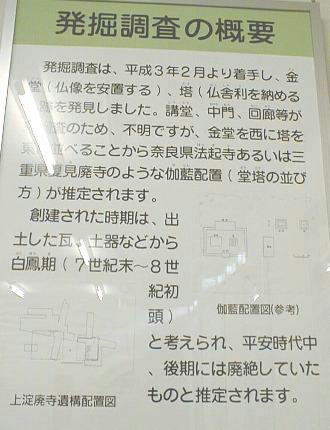 発掘調査の概要
発掘調査は、平成3年2月より着手し、金
堂(仏像を安置する)、塔(仏舎利を納める
跡を発見しました。講堂、中門、回廊等が
査のため、不明ですが、金堂を西に塔を
東に並べることから奈良県法起寺あるいは三
重県夏見廃寺のような伽藍配置(堂塔の並び
方)が推定されます。
創建された時期は、出
土した瓦、土器などから
白鳳期(7世紀末～8世
紀初
頭)
と考えられ、平安時代中
、後期には廃絶していた
ものと推定されます。
伽藍配置図(参考)
上淀廃寺遺構配置図